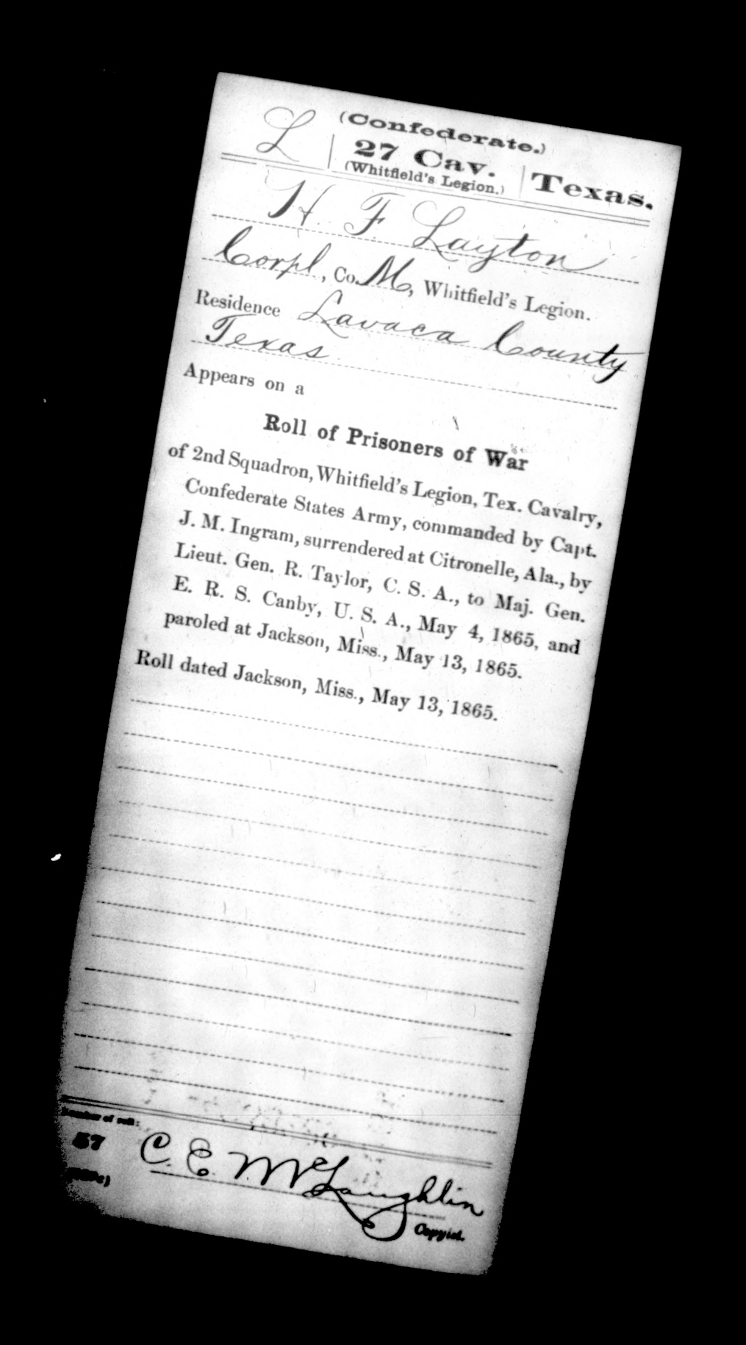 (Confederate.)
L | 27 Cav. | Texas.
(Whitfield's Legion.)
H F Layton
Corpl, Co. M, Whitfield's Legion.
Residence Lavaca County
Texas
Appears on a
Roll of Prisoners of War
of 2nd Squadron, Whitfield's Legion, Tex. Cavalry,
Confederate States Army, commanded by Capt.
J. M. Ingram, surrendered at Citronelle, Ala., by
Lieut. Gen. R. Taylor, C. S. A., to Maj. Gen.
E. R. S. Canby, U. S. A., May 4, 1865, and
paroled at Jackson, Miss., May 13, 1865.
Roll dated Jackson, Miss., May 13, 1865.
Number of roll:
57
C. E. McLaughlin
Copyist.